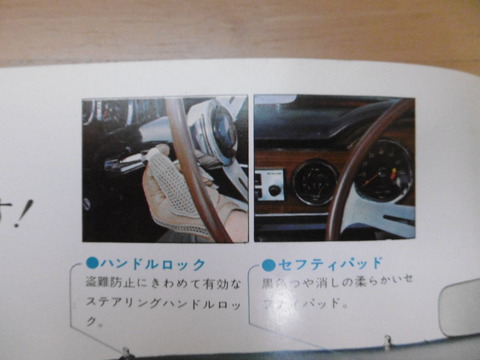 す!
●ハンドルロック
盗難防止にきわめて有効な
ステアリングハンドルロッ
ク。
●セフティパッド
黒色つや消しの柔らかいセ
フティパッド。